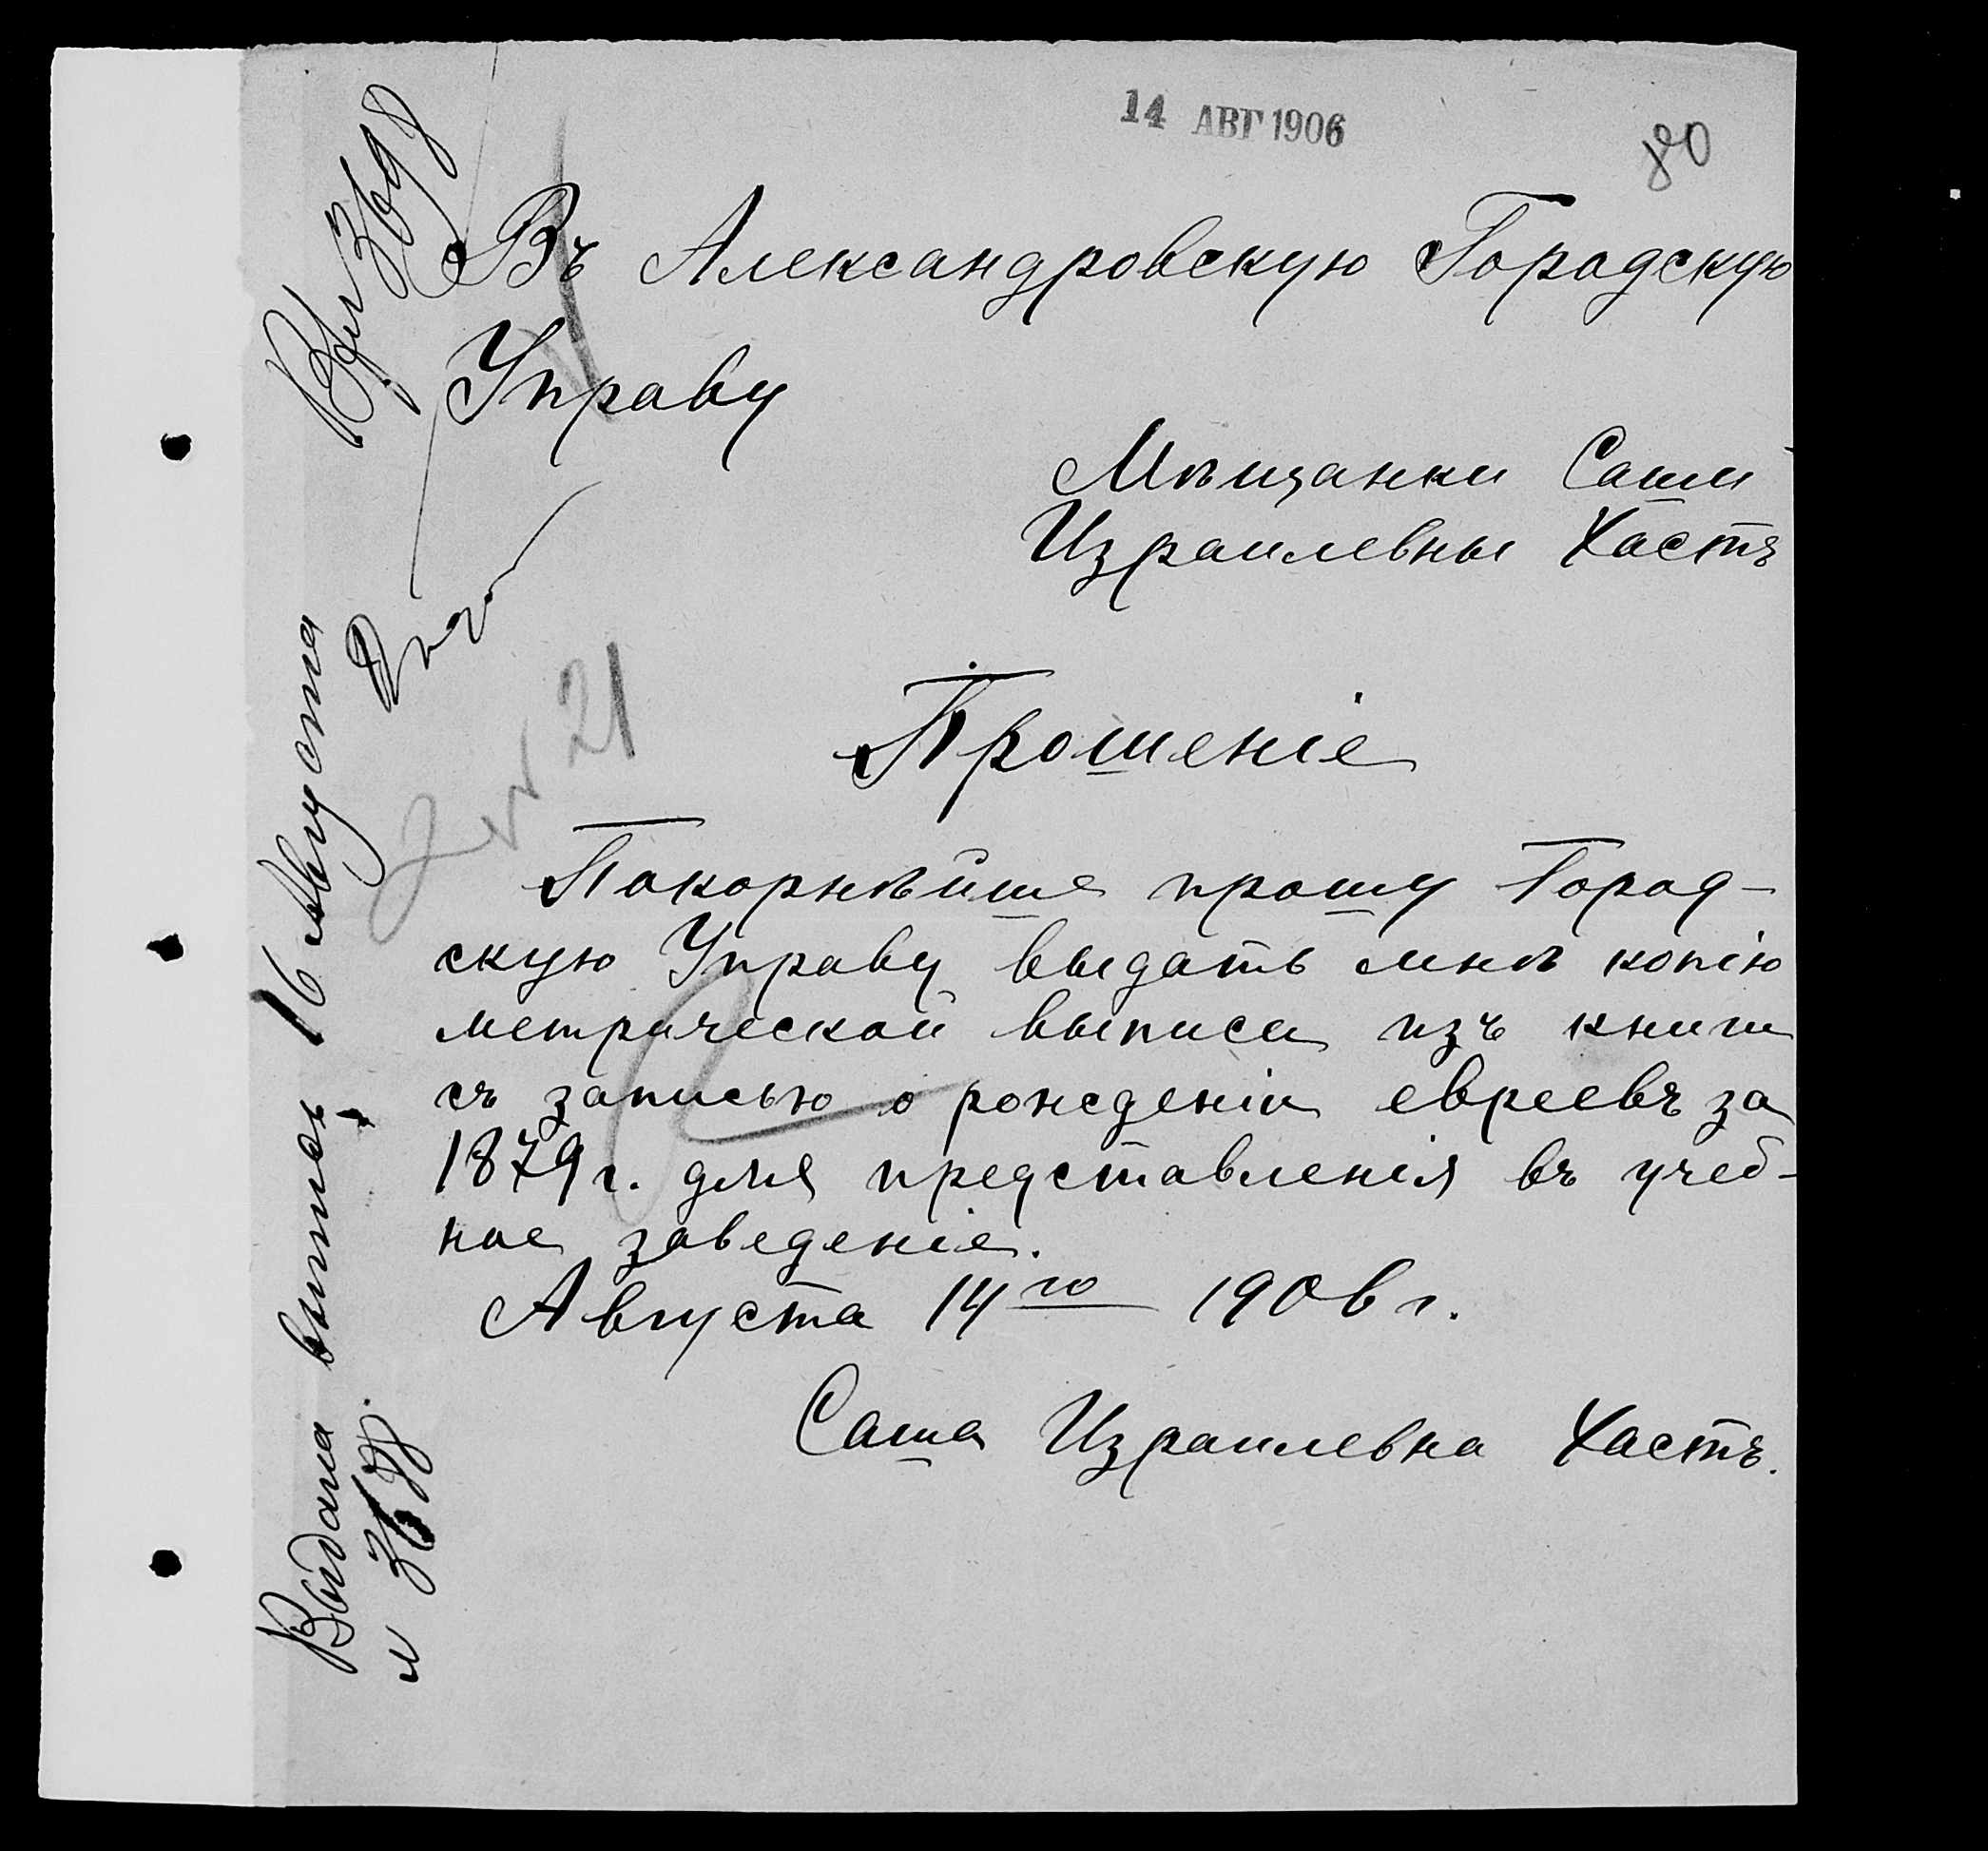 14 АВГ 1906
80
Въ Александровскую Городскую
Управу
Мѣщанки Саши
Израилевны Хастъ
Прошеніе
Покорнѣйше прошу Город-
скую Управу выдать мнѣ копію
метрической выписи изъ книги
съ записью о рожденіи евреевъ за
1879 г. для представленія въ учеб-
ное заведеніе.
Августа 14го 1906 г.
Саша Израилевна Хастъ.
3698
21
Выдана выпись 16 Августа